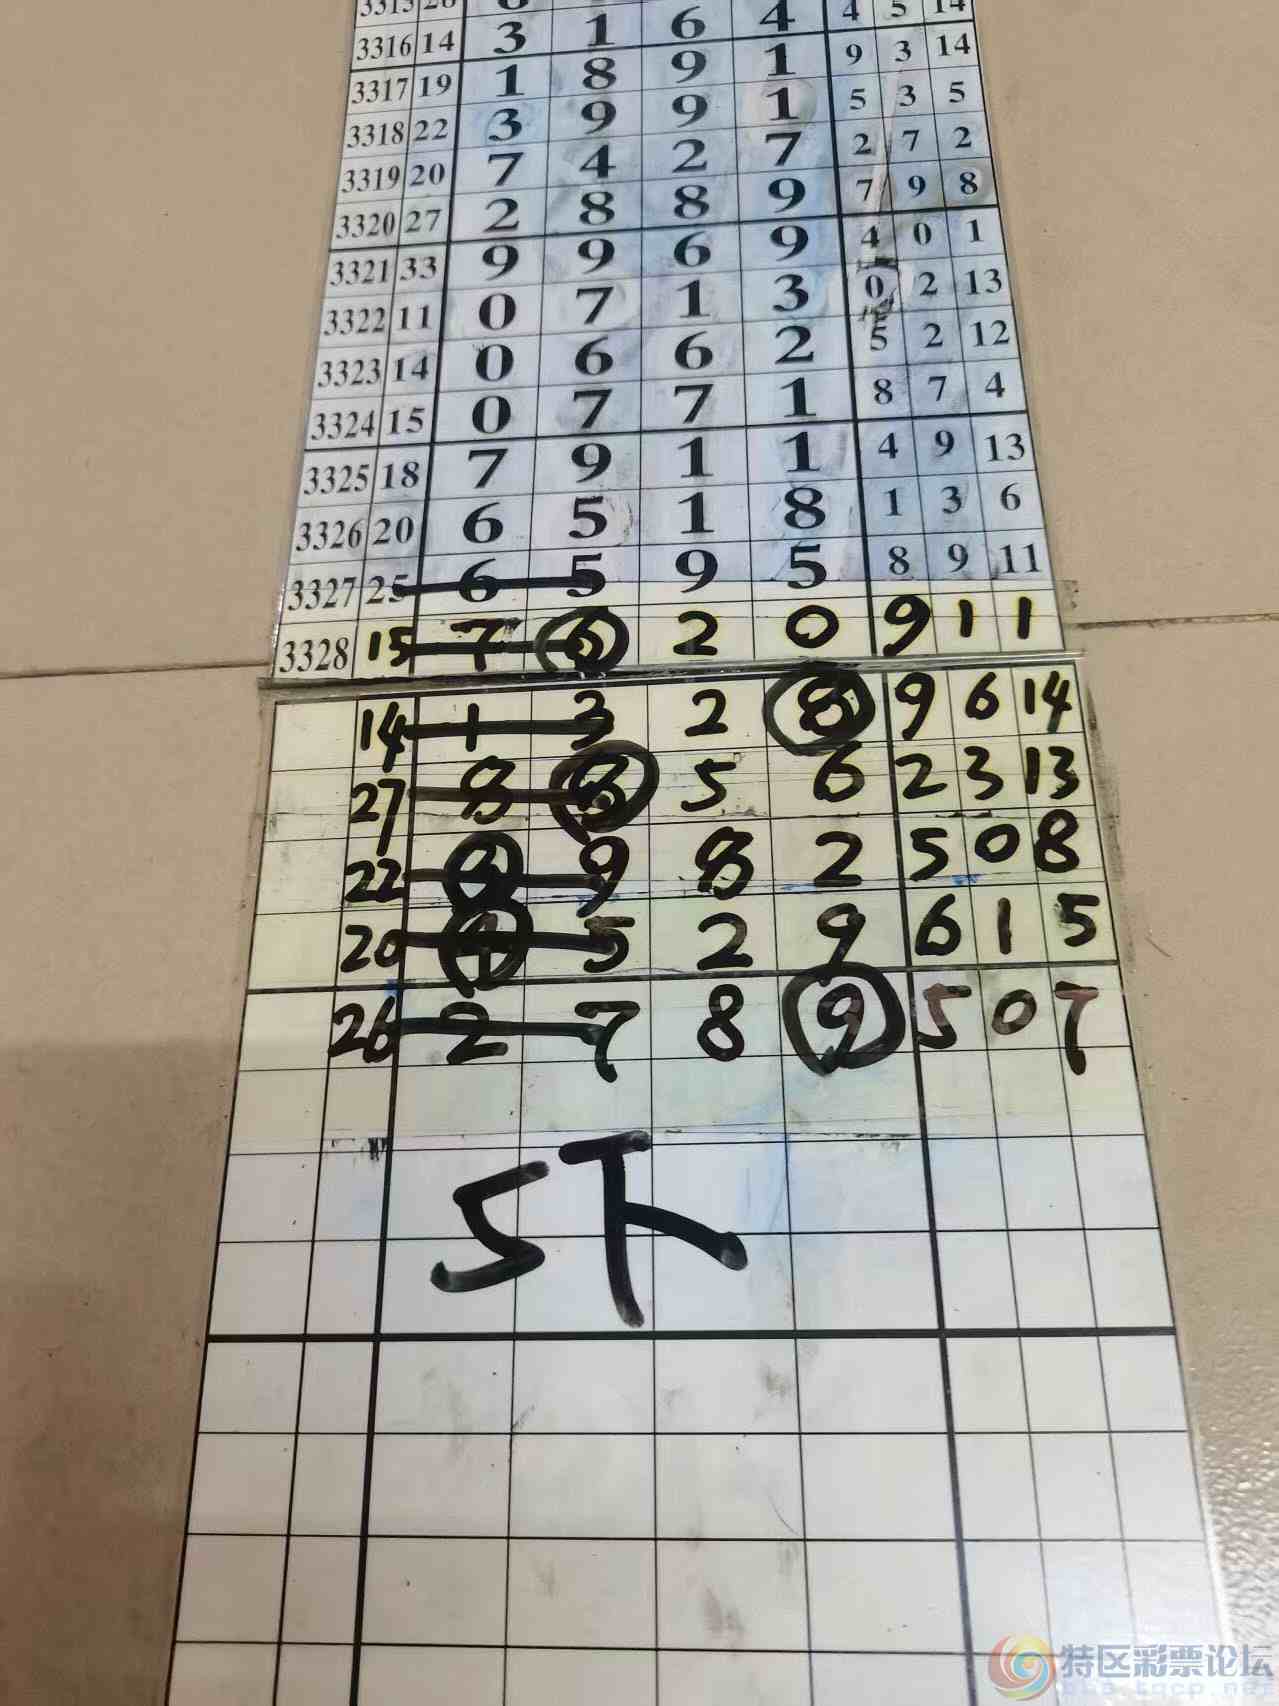 3316 14 3 1 6 4 4 5 14
3317 19 1 8 9 1 9 3 14
3318 22 3 9 9 1 5 3 5
3319 20 7 4 2 7 2 7 2
3320 27 2 8 8 9 7 9 8
3321 33 9 9 6 9 4 0 1
3322 11 0 7 1 3 0 2 13
3323 14 0 6 6 2 5 2 12
3324 15 0 7 7 1 8 7 4
3325 18 7 9 1 1 4 9 13
3326 20 6 5 1 8 1 3 6
3327 25 6 5 9 5 8 9 11
3328 15 7 6 2 0 9 1 1
14 1 3 2 8 9 6 14
27 8 8 5 6 2 3 13
22 3 9 8 2 5 0 8
20 4 5 2 9 6 1 5
26 2 7 8 9 5 0 7
5下
特区彩票论坛
bbs.tqcp.net